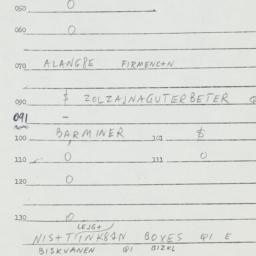 050 0
060 0
070 ALANGRE FIRMENCAN
090 $ ZOLZAJNAGUTERBETER
091 -
100 BARMINER 101 $
110 0 111 0
120 0
130 0
LEJG+
BOVES QI E
BISKVANEN QI BIZEL